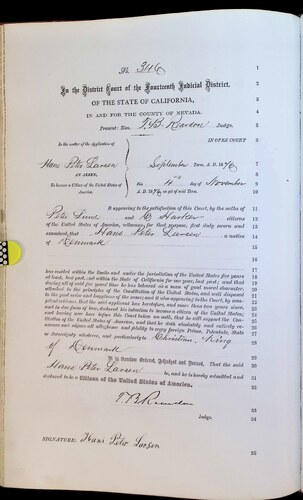 No. 346
In the District Court of the Fourteenth Judicial District,
OF THE STATE OF CALIFORNIA,
IN AND FOR THE COUNTY OF NEVADA.
Present: Hon. T. B. Reardon Judge.
In the matter of the Application of
IN OPEN COURT
Hans Peter Larsen
September Term, A. D. 1876
AN ALIEN,
To become a Citizen of the United States of America.
this 4th day of November
A. D. 1876, as yet of said Term.
It appearing to the satisfaction of this Court, by the oaths of
Peter Lund and C. Harker citizens
of the United States of America, witnesses for that purpose, first duly sworn and
examined, that Hans Peter Larsen a native
of Denmark
has resided within the limits and under the jurisdiction of the United States five years
at least, last past, and within the State of California for one year, last past; and that
during all of said five years' time he has behaved as a man of good moral character,
attached to the principles of the Constitution of the United States, and well disposed
to the good order and happiness of the same; and it also appearing to the Court, by competent
evidence, that the said applicant has heretofore, and more than two years since,
and in due form of law, declared his intention to become a citizen of the United States,
and having now here before this Court taken an oath, that he will support the Constitution
of the United States of America, and that he doth absolutely and entirely renounce
and abjure all allegiance and fidelity to every foreign Prince, Potentate, State
or Sovereignty whatever, and particularly to Christian, King
of Denmark
It is therefore Ordered, Adjudged and Decreed, That the said
Hans Peter Larsen be, and he is hereby admitted and
declared to be a Citizen of the United States of America.
T. B. Reardon
Judge.
SIGNATURE: Hans Peter Larsen
1
2
3
4
5
6
7
8
9
10
11
12
13
14
15
16
17
18
19
20
21
22
23
24
25
26
27
28
29
30
31
32
33
34
35